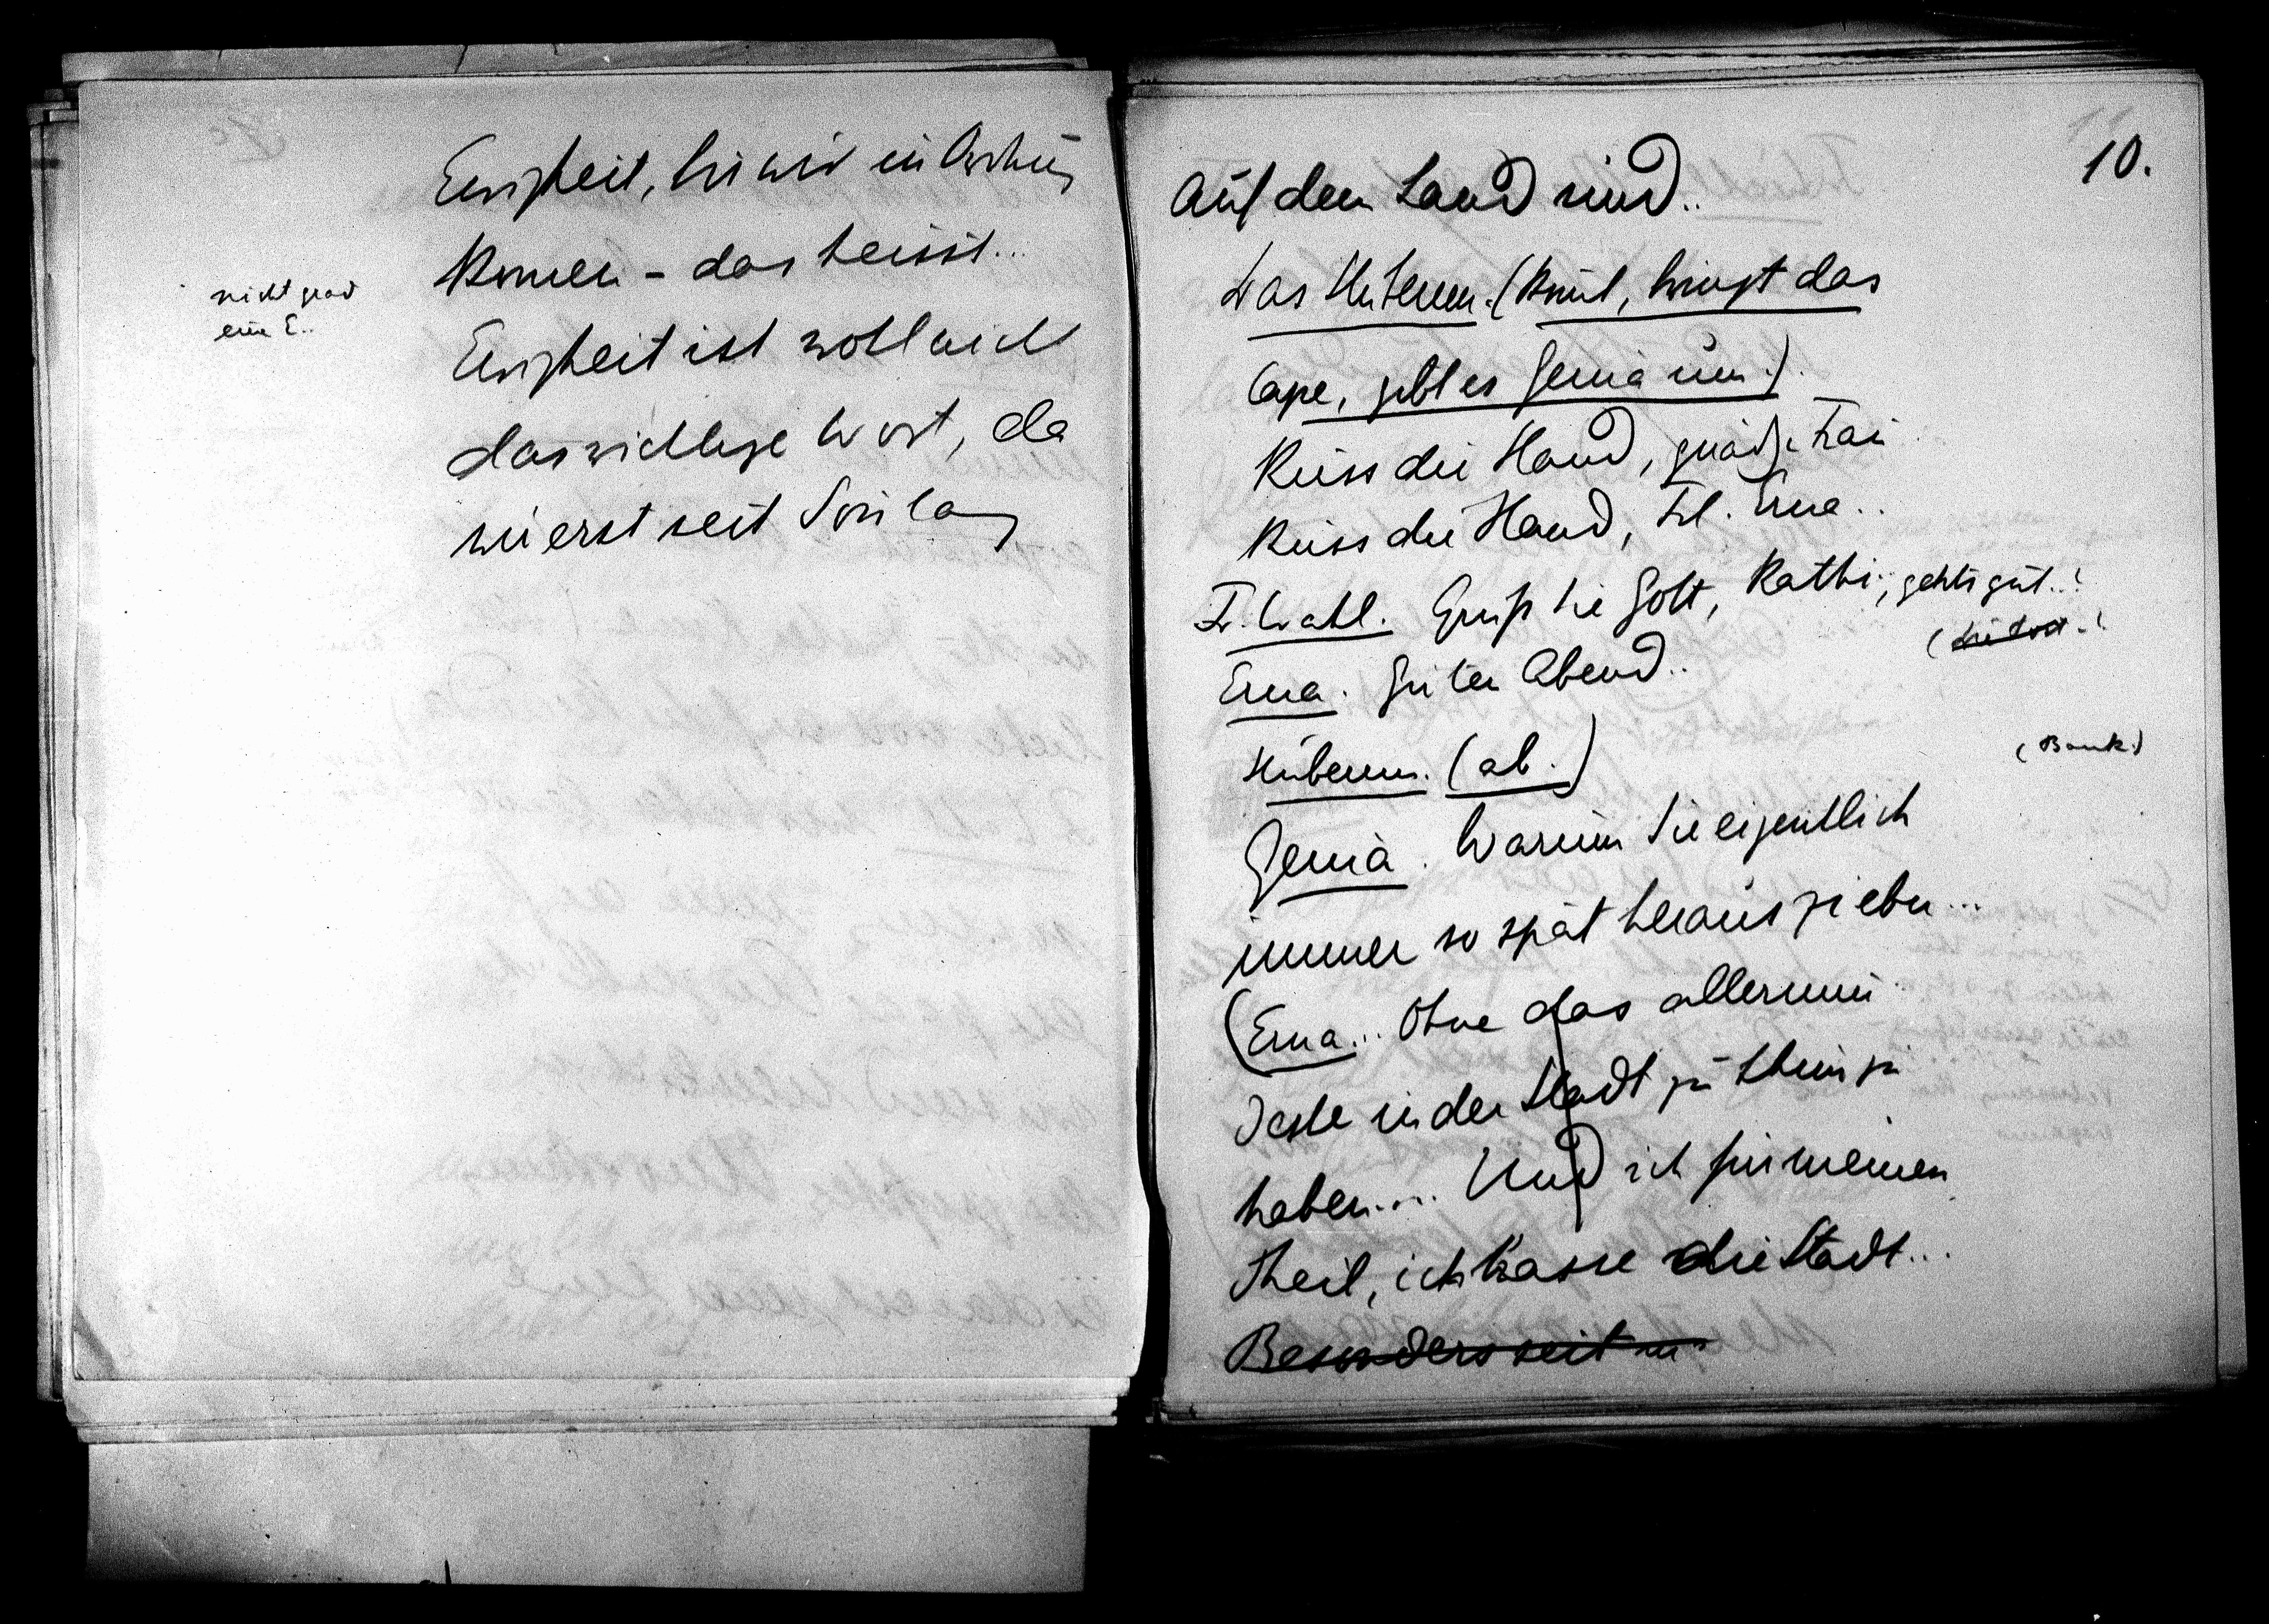 Ewigkeit, bis wir in Ordnung
kommen – das heisst...
nicht grad
eine E..
Ewigkeit ist wohl nicht
das richtige Wort, da
wir erst seit so lang
10.
auf dem Land sind..
Das Stubenm. (kommt, bringt das
Cape, gibt es Genia um.)
Küss die Hand, gnädge Frau
Küss die Hand, Frl. Erna..
Fr. Wahl. Grüß Sie Gott, Kathi, gehts gut..?
Erna. Guten Abend..
Stubenm. (ab.)
(Bank.)
Genia. Warum Sie eigentlich
immer so spät herausziehen...
(Erna... Ohne das allermin
deste in der Stadt zu thun zu
haben.... Und ich für meinen
Theil, ich hasse die Stadt...
Besonders seit